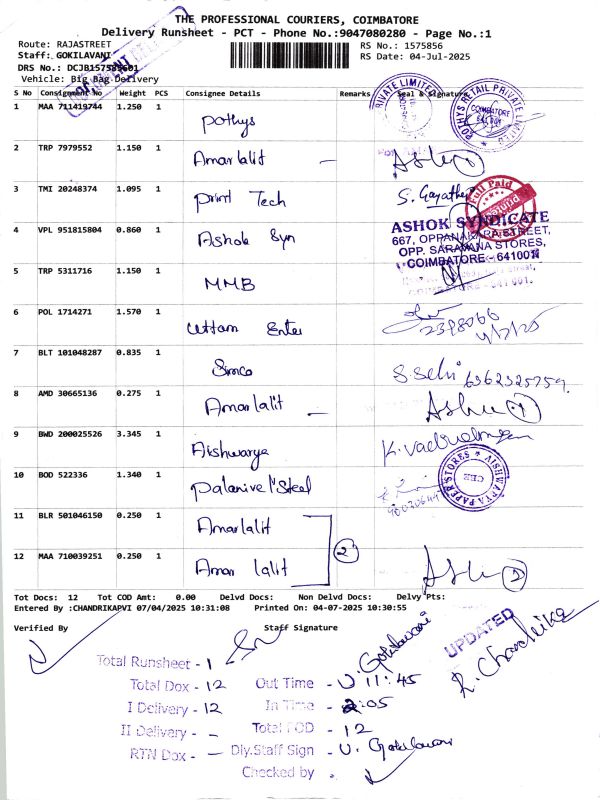 THE PROFESSIONAL COURIERS, COIMBATORE
Delivery Runsheet - PCT - Phone No.:9047080280 - Page No.:1
Route: RAJASTREET
RS No.: 1575856
Staff: GOKILAVANI
RS Date: 04-Jul-2025
DRS No.:
Vehicle: Big Bag Delivery
S No Consignment No Weight PCS Consignee Details Remarks Seal & Signature
1 MAA 711419744 1.250 1 Pothys
PRIVATE LIMITED
POTHYS RETAIL PRIVATE LIMITED
COIMBATORE
641 001
2 TRP 7979552 1.150 1 Amarlalit -
3 TMI 20248374 1.095 1 Print Tech S. Gayathri
Full Paid
4 VPL 951815804 0.860 1 Ashok Syn
ASHOK SYNDICATE
667, OPPANAKARA STREET,
OPP. SARAVANA STORES,
COIMBATORE - 641001
5 TRP 5311716 1.150 1 MMB
6 POL 1714271 1.570 1 Uttam Enter 2398066
4/7/25
7 BLT 101048287 0.835 1 Simco S. Selvi 6362325759.
8 AMD 30665136 0.275 1 Amarlalit - 1
9 BWD 200025526 3.345 1 Aishwarya
10 BOD 522336 1.340 1 Palanivel Steel
AISHWARYA PAPER STORES
CBE
11 BLR 501046150 0.250 1 Amarlalit
2
12 MAA 710039251 0.250 1 Amar lalit 2
Tot Docs: 12 Tot COD Amt: 0.00 Delvd Docs: Non Delvd Docs: Delvy Pts:
Entered By :CHANDRIKAPVI 07/04/2025 10:31:08 Printed On: 04-07-2025 10:30:55
Verified By Staff Signature
UPDATED
R. Chandrika
Total Runsheet - 1
Total Dox - 12 Out Time - 11:45
I Delivery - 12 In Time - 2:05
II Delivery - - Total POD - 12
RTN Dox - - Dly.Staff Sign - U. Gokilavani
Checked by -